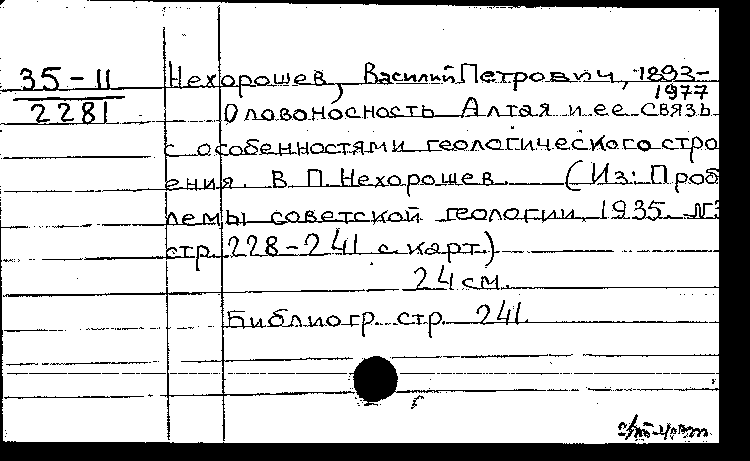 35-11
2281
Нехорошев, Василий Петрович, 1893-
1977
Оловоносность Алтая и ее связь
с особенностями геологического стро
ения. В. П. Нехорошев. (Из: Проб
лемы советской геологии. 1935. №3
стр. 228-241 с карт.)
24 см.
Библиогр. стр. 241.